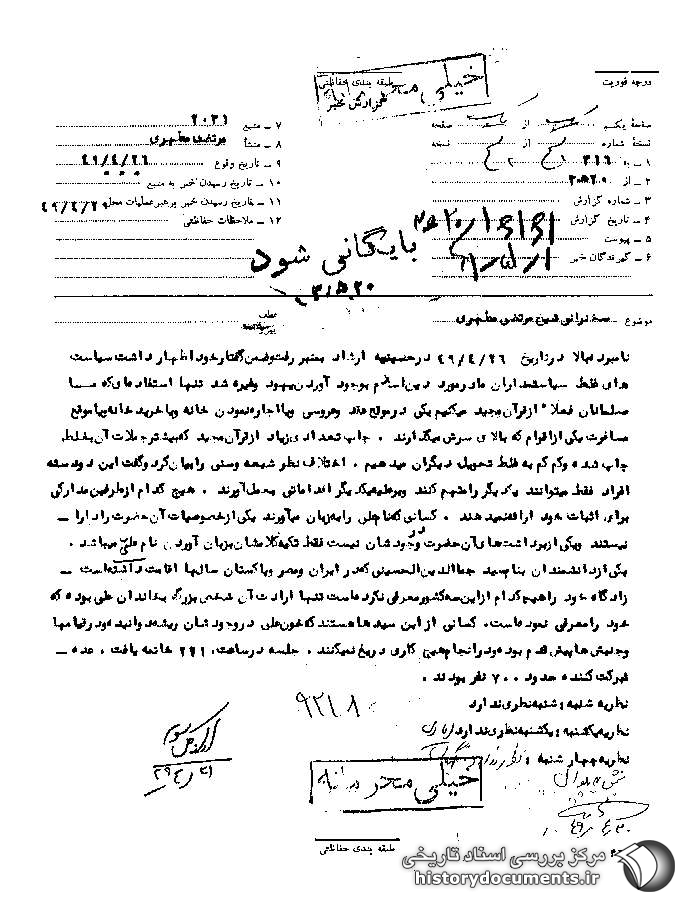 درجه فوریت
طبقه بندی حفاظتی
خیلی محرمانه
گزارش خبر
صفحهٔ یکم از یک صفحه
نسخهٔ شماره از نسخه
۱ ـ به ۳۱۶
۲ ـ از
۳ ـ شماره گزارش
۴ ـ تاریخ گزارش
۵ ـ پیوست
۶ ـ گیرندگان خبر
۷ ـ منبع
۸ ـ منشأ مرتضی مطهری
۹ ـ تاریخ وقوع ۴۹/۴/۲۶
۱۰ ـ تاریخ رسیدن خبر به منبع
۱۱ ـ تاریخ رسیدن خبر برهبر عملیات محلی
۱۲ ـ ملاحظات حفاظتی
بایگانی شود
موضوع سخنرانی شیخ مرتضی مطهری
عطف
نامبرده بالا در تاریخ ۴۹/۴/۲۶ در حسینیه ارشاد بمنبر رفت و ضمن گفتار خود اظهار داشت سیاست
های غلط سیاستمداران ما در مورد دین اسلام بوجود آوردن یهود وغیره شد تنها استفاده‌ای که ما
مسلمانان فعلاً از قرآن مجید میکنیم یکی در موقع عقد وعروسی ویا اجاره نمودن خانه ویا خرید خانه ویا موقع
مسافرت یکی از اقوام که بالای سرش میگذارند . چاپ تعدادی زیاد از قرآن مجید که بیشتر جملات آن بغلط
چاپ شده وکم کم به غلط تحویل دیگران میدهیم . اختلاف نظر شیعه وسنی را بیان کرد وگفت این دو دسته
افراد فقط میتوانند یکدیگر را متهم کنند وبرعلیه یکدیگر اقداماتی بعمل آورند . هیچ کدام از طرفین مدارکی
برای اثبات خود ارائه نمیدهند . کسانی که نام علی را به زبان میآورند یکی از خصوصیات آن حضرت را دارا ـ
نیستند ویکی از برداشت‌های آن حضرت در وجودشان نیست فقط تکیه کلامشان بزبان آوردن نام علی میباشد .
یکی از دانشمندان بنام سید جمال‌الدین الحسینی که در ایران ومصر وپاکستان سالها اقامت داشته است ـ
زادگاه خود را هیچکدام از این سه کشور معرفی نکرده است تنها ارادت آن شخص بزرگ بخاندان علی بوده که
خود را معرفی نموده است. کسانی از این سیدها هستند که خون علی در وجودشان ریشه دوانیده ودر قیامها
وجنبش‌ها پیش قدم بوده ودر انجام هیچ کاری دریغ نمیکنند . جلسه در ساعت خاتمه یافت . عده ـ
شرکت کننده حدود ۷۰۰ نفر بودند .
نظریه شنبه : شنبه نظری ندارد
نظریه یکشنبه : یکشنبه نظری ندارد
نظریه چهارشنبه :
خیلی محرمانه
طبقه بندی حفاظتی
مرکز بررسی اسناد تاریخی
historydocuments.ir